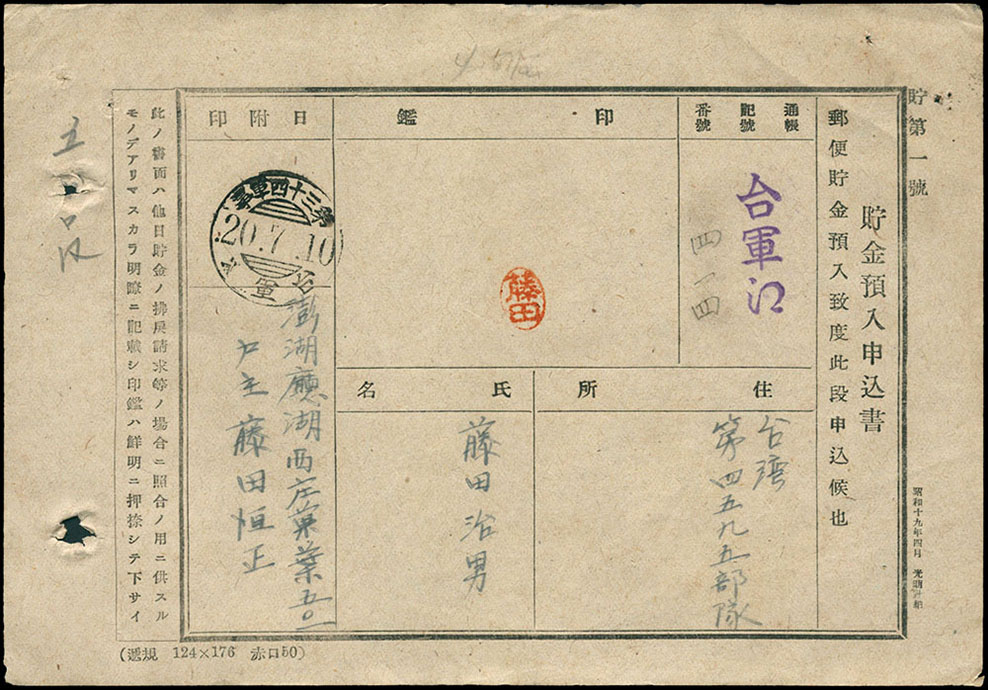 貯第一號
昭和十九年四月
貯金預入申込書
郵便貯金預入致度此段申込候也
通帳
記號
番號
台軍江
四一四
印鑑
藤田
日附印
第三十四軍事
20.7.10
住所
台湾
第四五九五部隊
氏名
藤田治男
澎湖廳湖西庄菓葉五〇一
戸主藤田恒正
此ノ書面ハ他日貯金ノ拂戻請求等ノ場合ニ照合ノ用ニ供スル
モノデアリマスカラ明瞭ニ記載シ印鑑ハ鮮明ニ押捺シテ下サイ
(遞規 124×176 赤口50)